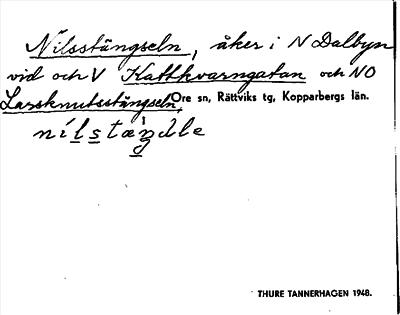 Nilsstängseln, åker i N Dalbyn
vid och V Kattkvarngatan och NO
Larsknutsstängseln, Ore sn, Rättviks tg, Kopparbergs län.
THURE TANNERHAGEN 1948.